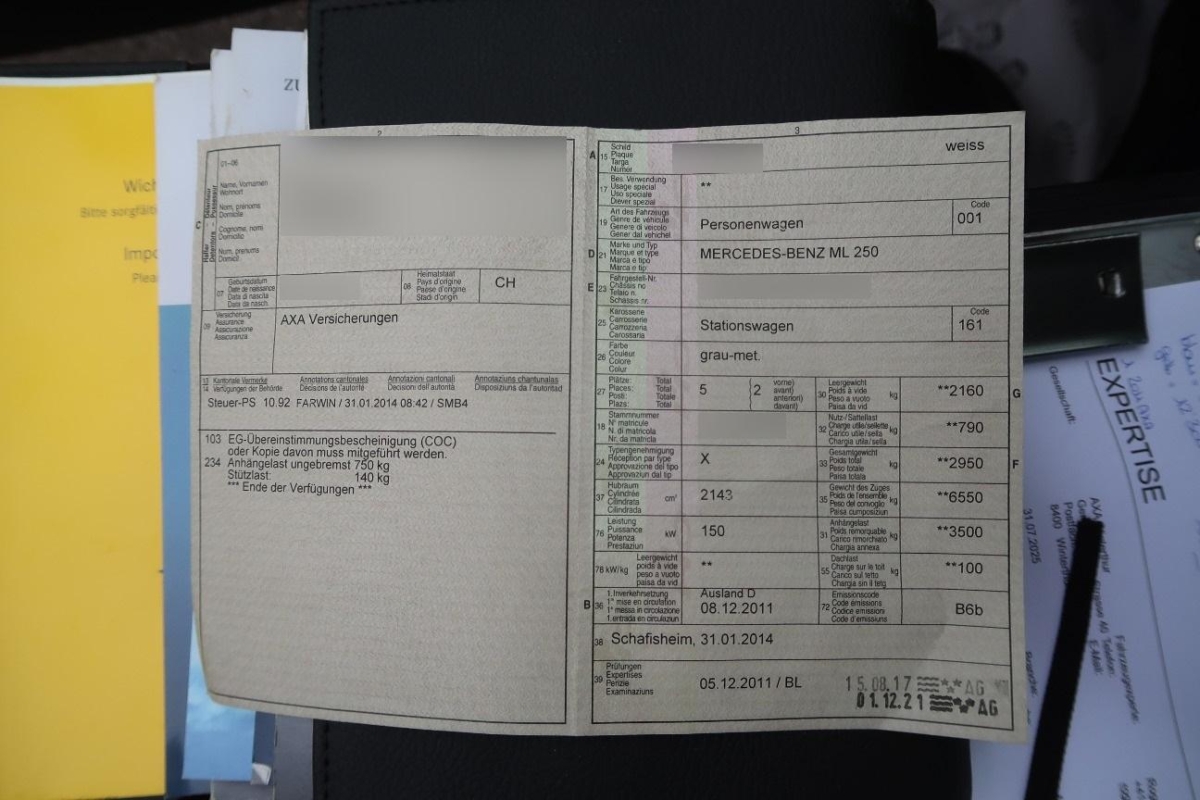 ZU
Wich
Bitte sorgfält
Impo
Plea
2
01–06
Name, Vornamen
Wohnort
Nom, prénoms
Domicile
Cognome, nomi
Domicilio
Num, prenums
Domicil
C
07
Geburtsdatum
Date de naissance
Data di nascita
Data da nasch.
08
Heimatstaat
Pays d'origine
Paese d'origine
Stadi d'origin
CH
09
Versicherung
Assurance
Assicurazione
Assicuranza
AXA Versicherungen
Kantonale Vermerke
Verfügungen der Behörde
Annotations cantonales
Décisions de l'autorité
Annotazioni cantonali
Decisioni dell'autorità
Annotaziuns chantunalas
Disposiziuns da l'autoritad
Steuer-PS 10.92 FARWIN / 31.01.2014 08:42 / SMB4
103 EG-Übereinstimmungsbescheinigung (COC)
oder Kopie davon muss mitgeführt werden.
234 Anhängelast ungebremst 750 kg
Stützlast: 140 kg
*** Ende der Verfügungen ***
3
A 15
Schild
Plaque
Targa
Numer
weiss
17
Bes. Verwendung
Usage spécial
Uso speciale
Diever spezial
**
19
Art des Fahrzeugs
Genre de véhicule
Genere di veicolo
Gener dal vehichel
Personenwagen
Code
001
D 21
Marke und Typ
Marque et type
Marca e tipo
Marca e tip
MERCEDES-BENZ ML 250
E 23
Fahrgestell-Nr.
Châssis no
Telaio n.
Schassis nr.
25
Karosserie
Carrosserie
Carrozzeria
Carossaria
Stationswagen
Code
161
26
Farbe
Couleur
Colore
Colur
grau-met.
27
Plätze: Total
Places: Total
Posti: Totale
Plazs: Total
5
2
vorne)
avant)
anteriori)
davant)
30
Leergewicht
Poids à vide
Peso a vuoto
Paisa da vid
kg
**2160
G
18
Stammnummer
N° matricule
N. di matricola
Nr. da matricla
32
Nutz-/Sattellast
Charge utile/sellette
Carico utile/sella
Chargia utila/sella
kg
**790
24
Typengenehmigung
Réception par type
Approvazione del tipo
Approvaziun dal tip
X
33
Gesamtgewicht
Poids total
Peso totale
Paisa totala
kg
**2950
F
37
Hubraum
Cylindrée
Cilindrata
Cilindrada
cm³
2143
35
Gewicht des Zuges
Poids de l'ensemble
Peso del convoglio
Paisa cumposiziun
kg
**6550
76
Leistung
Puissance
Potenza
Prestaziun
kW
150
31
Anhängelast
Poids remorquable
Carico rimorchiato
Chargia annexa
kg
**3500
78 kW/kg
Leergewicht
poids à vide
peso a vuoto
paisa da vid
**
55
Dachlast
Charge sur le toit
Carico sul tetto
Chargia sin il tetg
kg
**100
B 36
1. Inverkehrsetzung
1re mise en circulation
1a messa in circolazione
1. entrada en circulaziun
Ausland D
08.12.2011
72
Emissionscode
Code émissions
Codice emissioni
Code d'emissiuns
B6b
38
Schafisheim, 31.01.2014
39
Prüfungen
Expertises
Perizie
Examinaziuns
05.12.2011 / BL
15.08.17 AG
01.12.21 AG
EXPERTISE
Gesellschaft:
31.07.2025
AXA
8400
Telefon:
E-Mail:
Fahrzeugexperte: